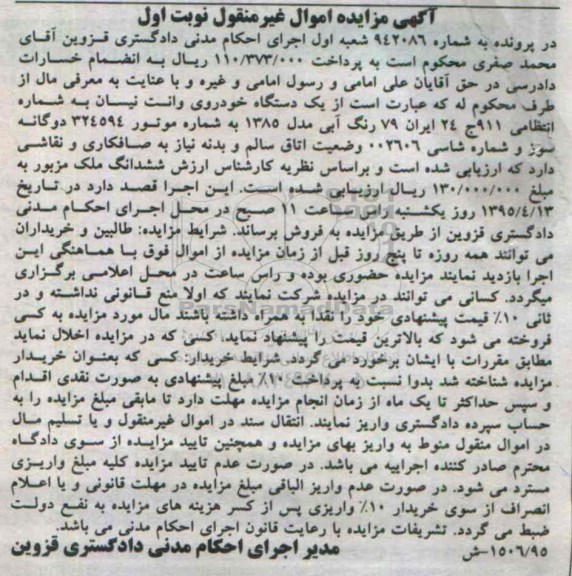 آگهی مزایده اموال غیرمنقول نوبت اول
در پرونده به شماره ۹۴۲۰۸۶ شعبه اول اجرای احکام مدنی دادگستری قزوین آقای
محمد صفری محکوم است به پرداخت ۱۱۰/۳۷۳/۰۰۰ ریال به انضمام خسارات
دادرسی در حق آقایان علی امامی و رسول امامی و غیره و با عنایت به معرفی مال از
طرف محکوم له که عبارت است از یک دستگاه خودروی وانت نیسان به شماره
انتظامی ۹۱۱ج ۲۴ ایران ۷۹ رنگ آبی مدل ۱۳۸۵ به شماره موتور ۳۲۴۵۹۴ دوگانه
سوز و شماره شاسی ۰۰۲۶۰۶ وضعیت اتاق سالم و بدنه نیاز به صافکاری و نقاشی
دارد که ارزیابی شده است و براساس نظریه کارشناس ارزش ششدانگ ملک مزبور به
مبلغ ۱۳۰/۰۰۰/۰۰۰ ریال ارزیابی شده است. این اجرا قصد دارد در تاریخ
۱۳۹۵/۴/۱۳ روز یکشنبه راس ساعت ۱۱ صبح در محل اجرای احکام مدنی
دادگستری قزوین از طریق مزایده به فروش برساند. شرایط مزایده: طالبین و خریداران
می توانند همه روزه تا پنج روز قبل از زمان مزایده از اموال فوق با هماهنگی این
اجرا بازدید نمایند مزایده حضوری بوده و راس ساعت در محل اعلامی برگزاری
میگردد. کسانی می توانند در مزایده شرکت نمایند که اولا منع قانونی نداشته و در
ثانی ۱۰٪ قیمت پیشنهادی خود را نقدا به همراه داشته باشند مال مورد مزایده به کسی
فروخته می شود که بالاترین قیمت را پیشنهاد نماید. کسی که در مزایده اخلال نماید
مطابق مقررات با ایشان برخورد می گردد. شرایط خریدار: کسی که بعنوان خریدار
مزایده شناخته شد بدوا نسبت به پرداخت ۱۰٪ مبلغ پیشنهادی به صورت نقدی اقدام
و سپس حداکثر تا یک ماه از زمان انجام مزایده مهلت دارد تا مابقی مبلغ مزایده را به
حساب سپرده دادگستری واریز نمایند. انتقال سند در اموال غیرمنقول و یا تسلیم مال
در اموال منقول منوط به واریز بهای مزایده و همچنین تایید مزایده از سوی دادگاه
محترم صادر کننده اجراییه می باشد. در صورت عدم تایید مزایده کلیه مبلغ واریزی
مسترد می شود. در صورت عدم واریز الباقی مبلغ مزایده در مهلت قانونی و یا اعلام
انصراف از سوی خریدار ۱۰٪ واریزی پس از کسر هزینه های مزایده به نفع دولت
ضبط می گردد. تشریفات مزایده با رعایت قانون اجرای احکام مدنی می باشد.
۱۵۰۶/۹۵-ش مدیر اجرای احکام مدنی دادگستری قزوین
ParsNamadData